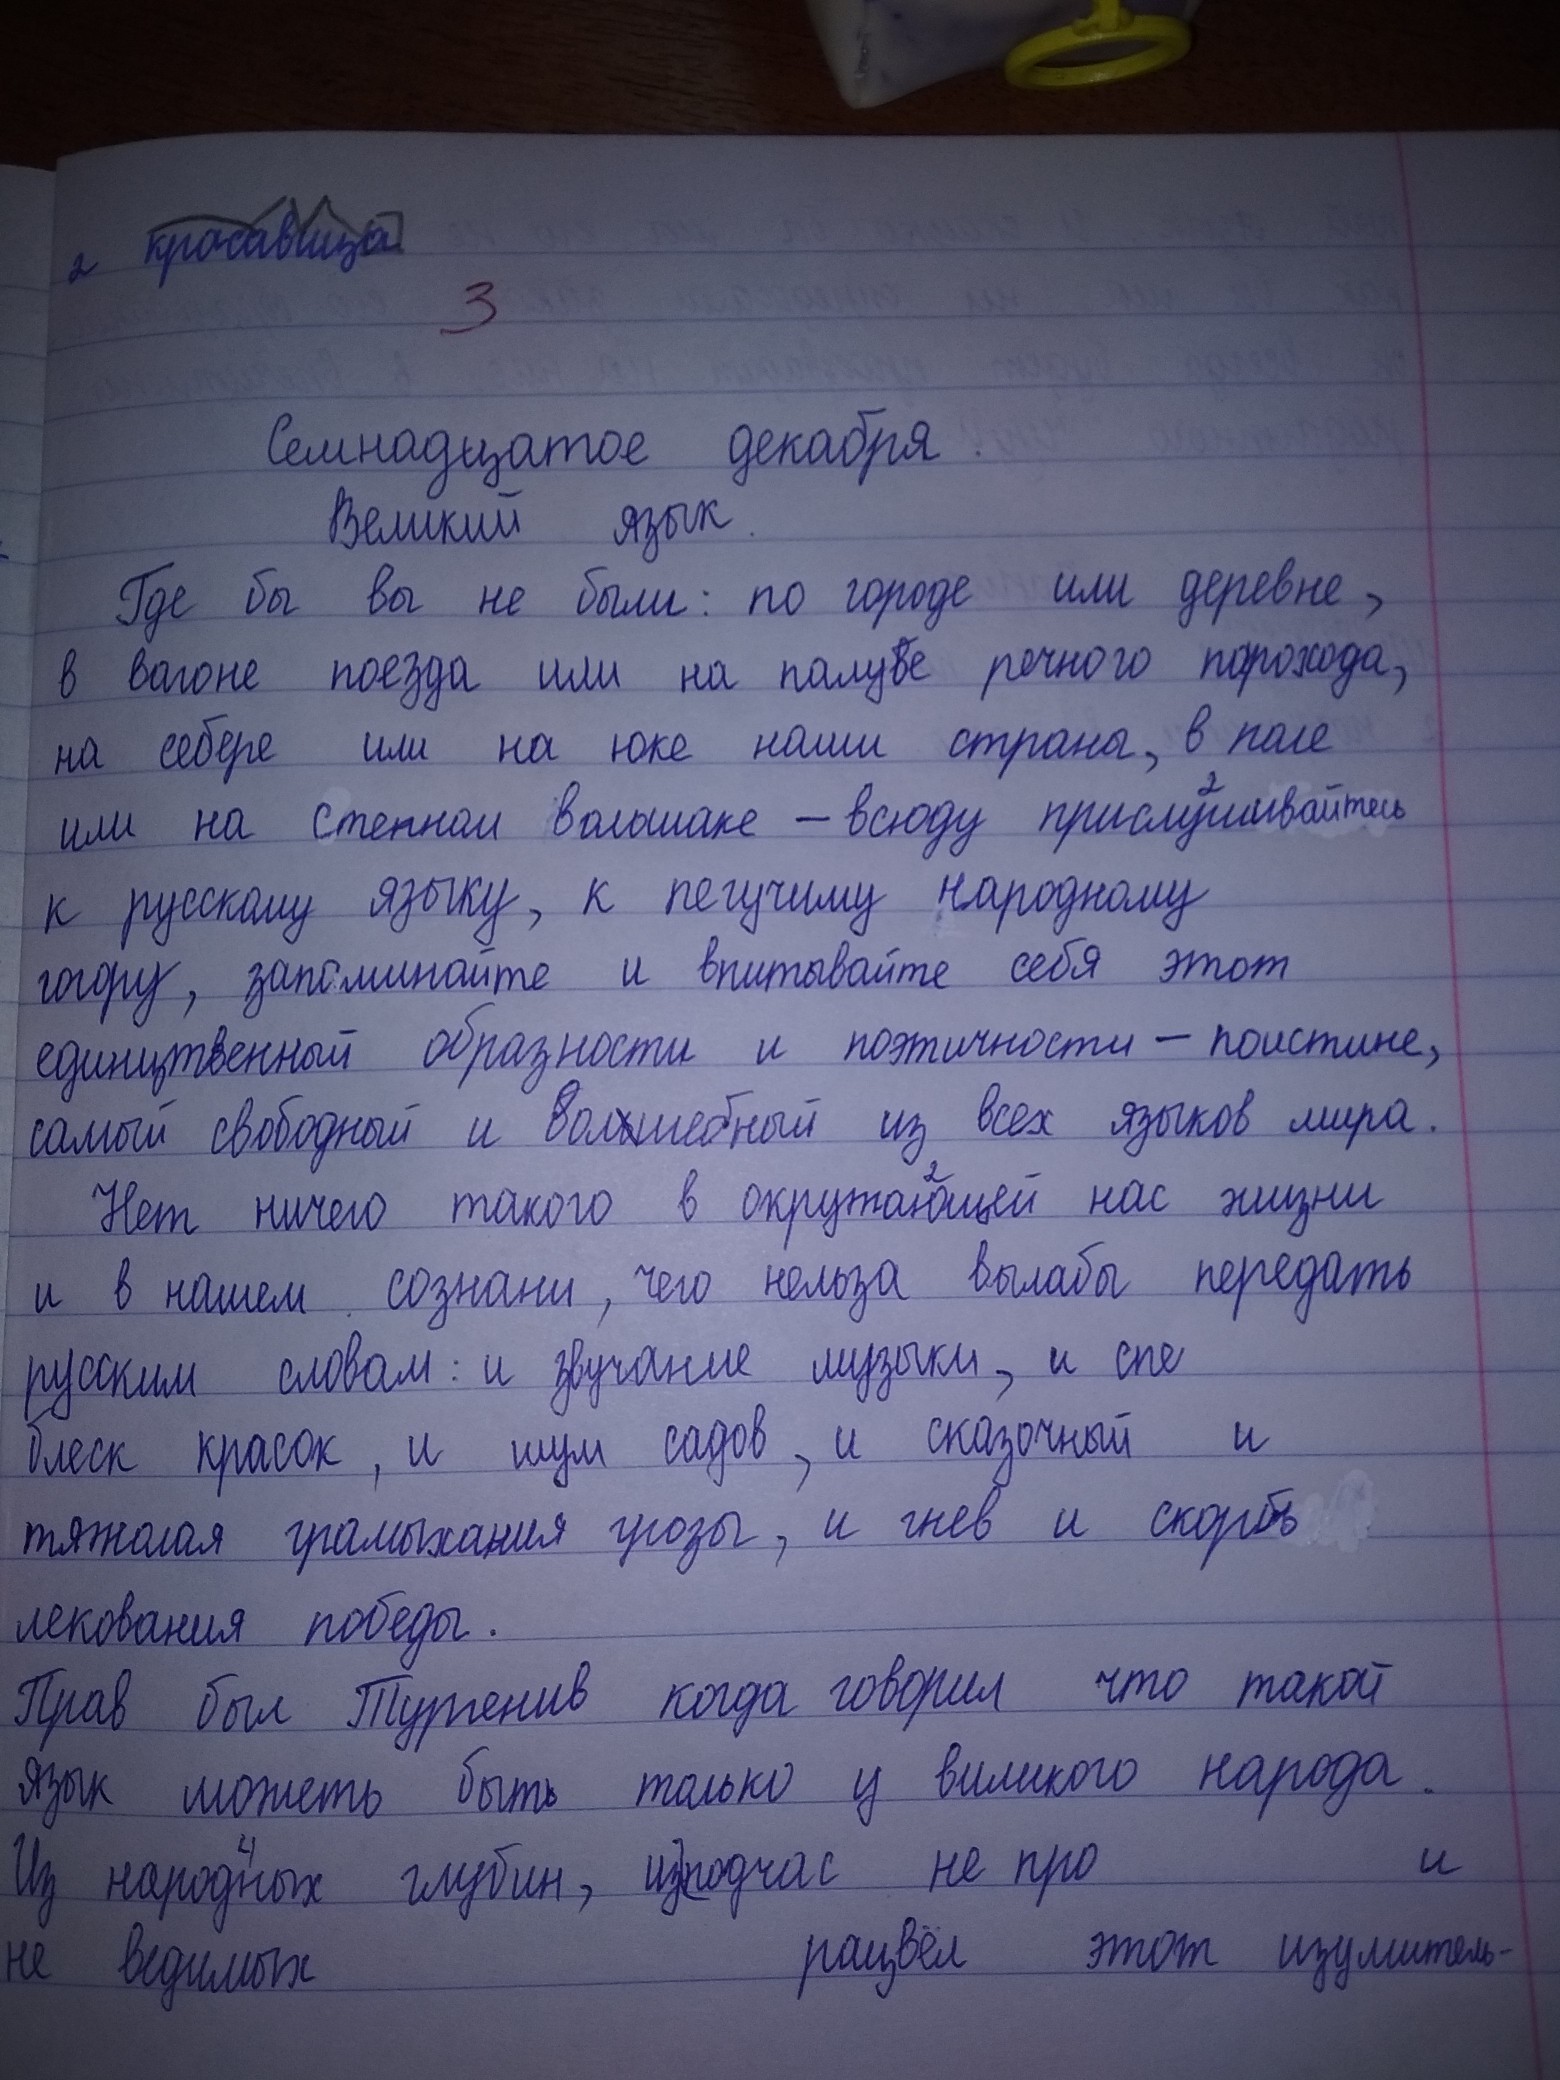 2 красавица
3
Семнадцатое декабря.
Великий язык.
Где бы вы не были: по городе или деревне,
в вагоне поезда или на палубе речного порохода,
на себере или на юке наши страны, в поле
или на степном волшаке – всюду прислушивайтесь
к русскому языку, к пегучиму народному
гогору, запоминайте и впитывайте себя этот
единцтвенный образности и поэтичности – поистине,
самый свободный и волшебный из всех языков мира.
Нет ничего такого в окружающей нас жизни
и в нашем сознани, чего нельза вылабы передать
русским словам: и звучание музыки, и спе
блеск красок, и шум садов, и сказочный и
тяжолая грамыхания грозы, и гнев и скорбь
лекования победы.
Прав был Тургенив когда говорил что такой
язык можеть быть только у виликого народа.
Из народных глубин, изподчас не про и
не ведимых рацвёл этот изумитель-